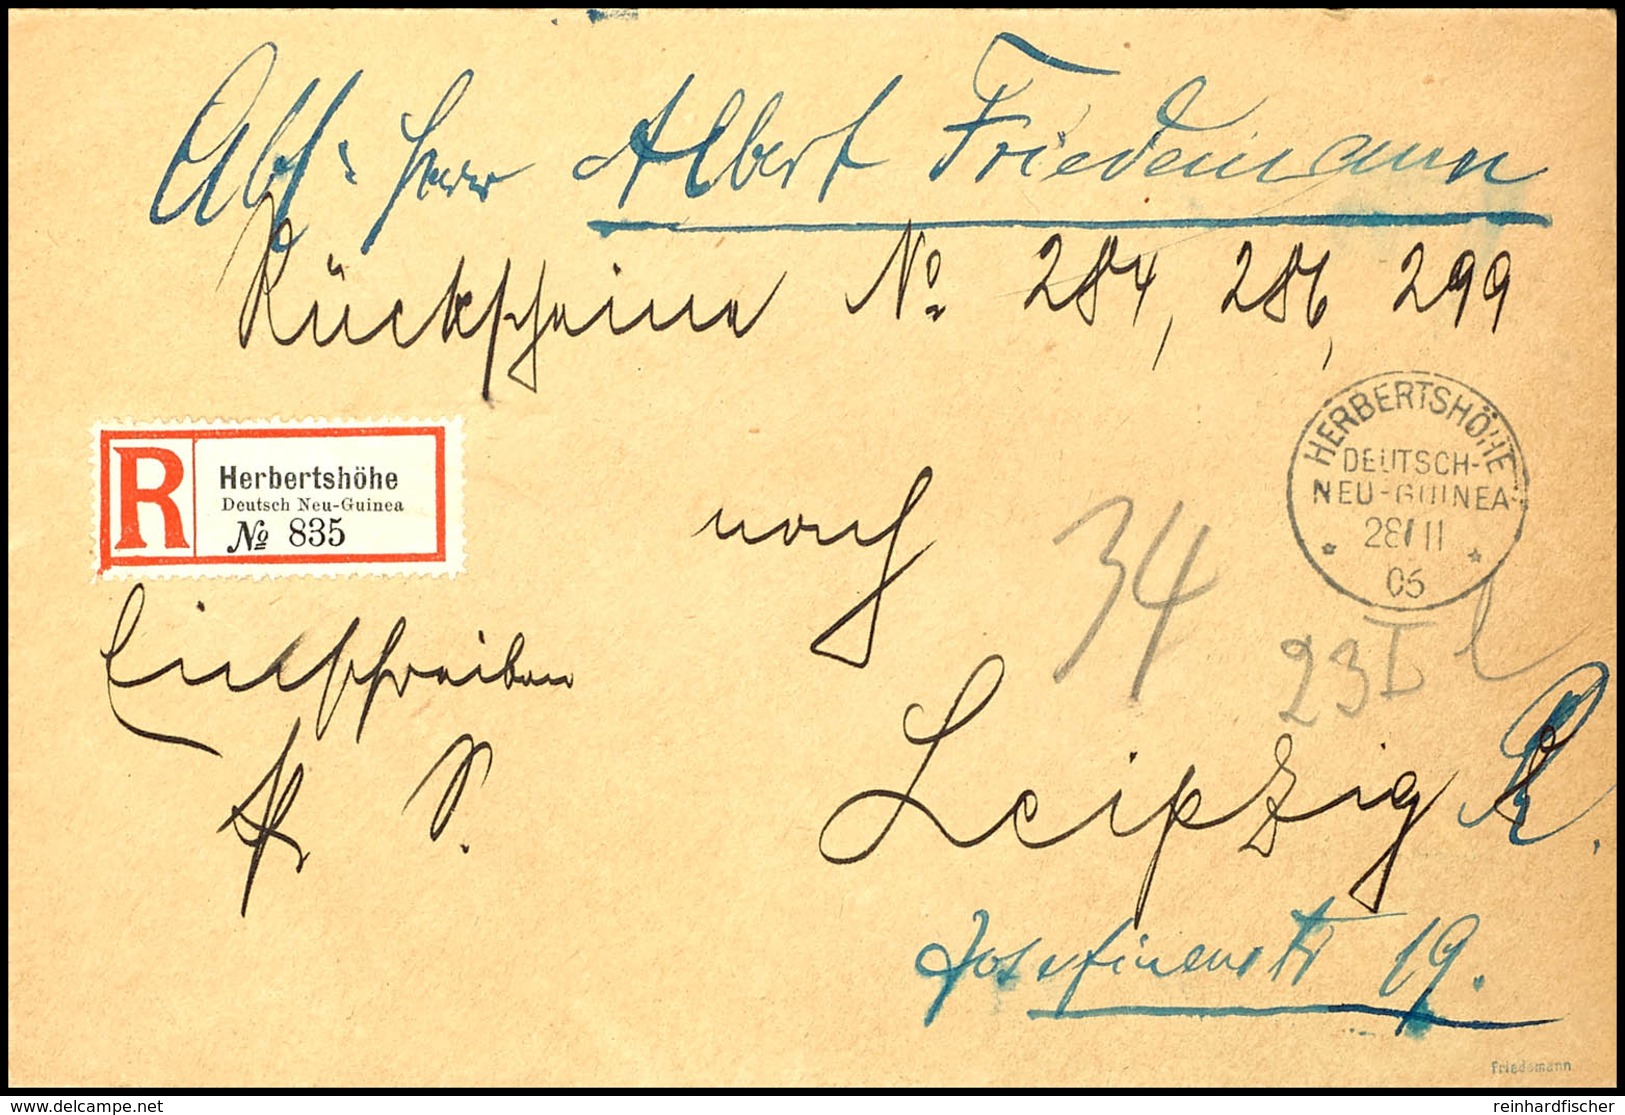 Abs: Herr Albert Friedemann
Rückscheine No 284, 286, 299
R
Herbertshöhe
Deutsch Neu-Guinea
No 835
HERBERTSHÖHE
DEUTSCH-
NEU-GUINEA
28/11
06
nach
34
23 I
Einschreiben
Leipzig R.
Josefinenstr 19.
Friedemann
delcampe.net
reinhardfischer